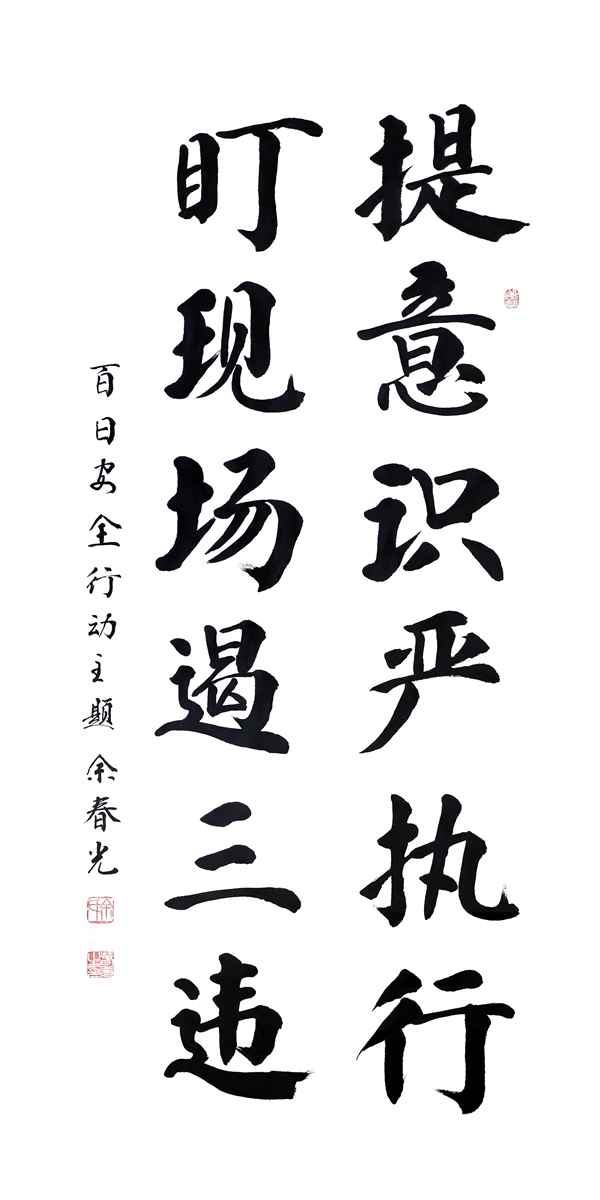 提意识严执行
盯现场遏三违
百日安全行动主题 余春光